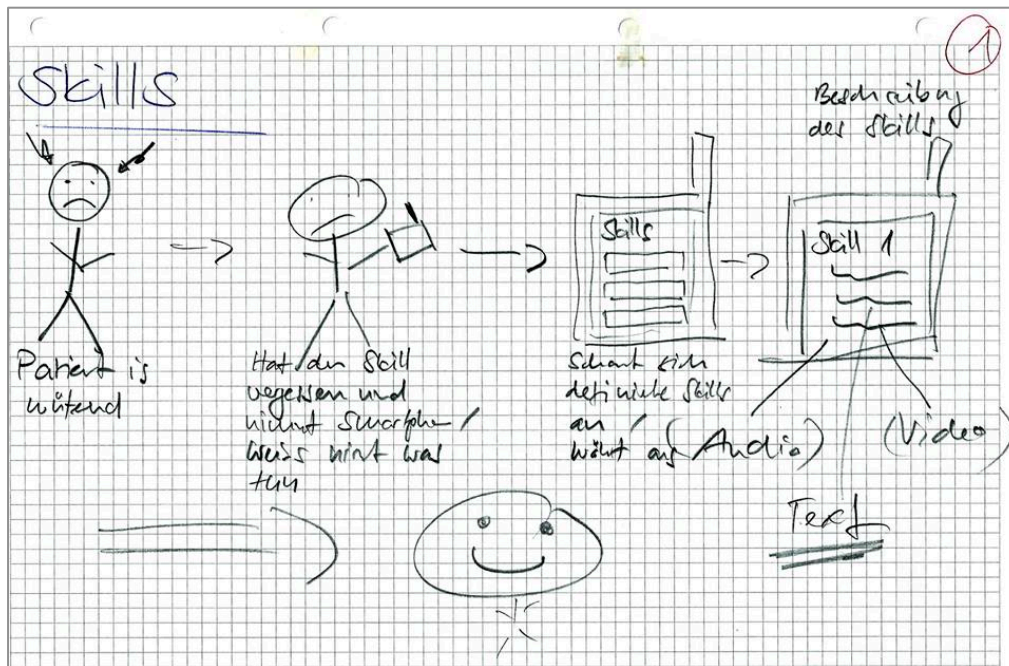 1
Skills
Beschreibung
des Skills
Skills
Skill 1
Patient is
wütend
Hat den Skill
vergessen und
nimmt Smartphon /
weiss nicht was
tun
Schaut sich
definierte Skills
an /
wählt aus
(Audio)
(Video)
Text